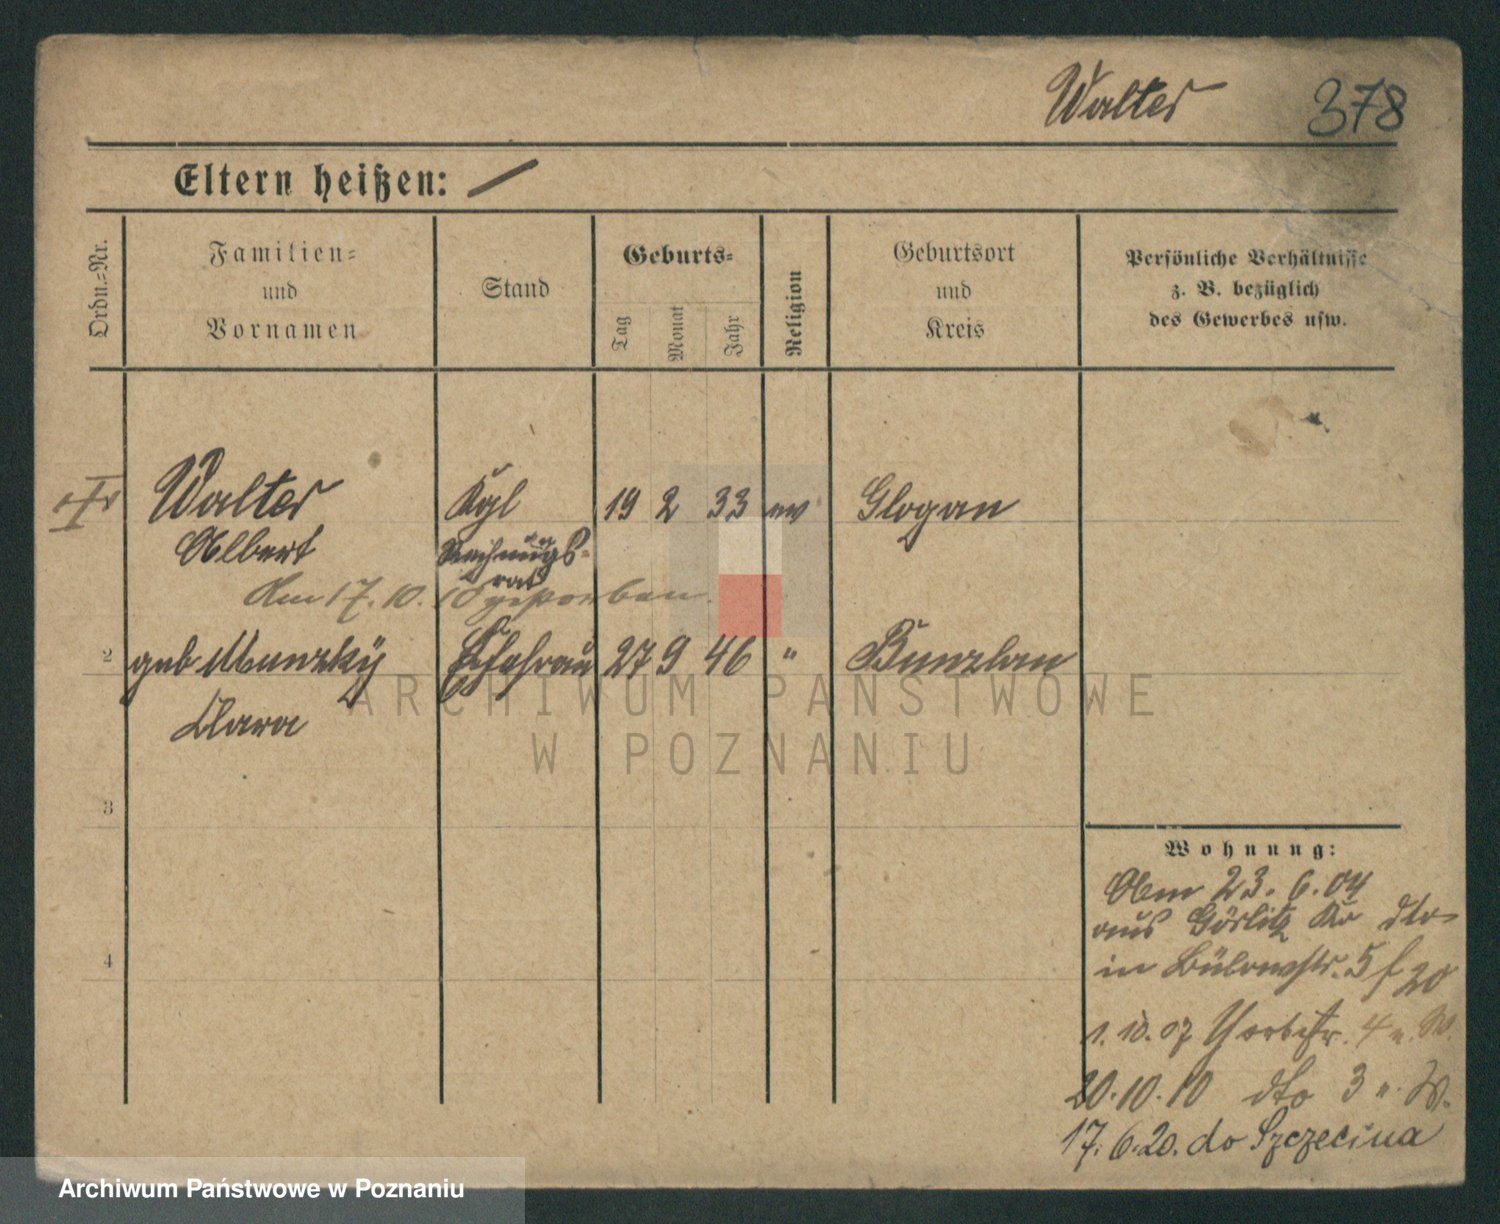 Walter 378
Eltern heißen: /
Ordn.-Nr.
Familien-
und
Vornamen
Stand
Geburts-
Tag
Monat
Jahr
Religion
Geburtsort
und
Kreis
Persönliche Verhältnisse
z. B. bezüglich
des Gewerbes usw.
Walter Kgl 19 2 33 ev Glogau
Albert Rechnungs-
rat
Am 17.10.10 gestorben.
2 geb Munzky Ehefrau 27 9 46 " Bunzlau
Clara
3
4
Wohnung:
23.6.04
aus Görlitz dto
in Bülowstr. 5 f 20
1.10.07 Yorkstr. 4 u. W.
20.10.10 dto 3 u. W.
17.6.20. do Szczecina
ARCHIWUM PAŃSTWOWE
W POZNANIU
Archiwum Państwowe w Poznaniu